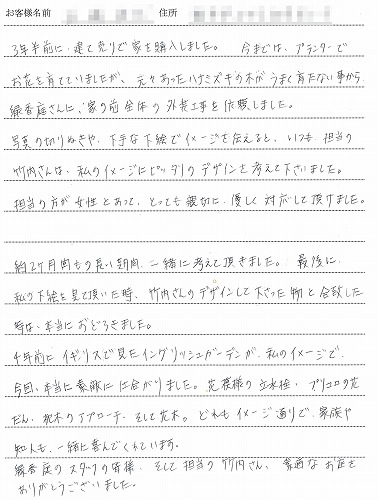 お客様名前 住所
3年半前に、建て売りで家を購入しました。 今までは、プランターで
お花を育てていましたが、元々あったハナミズキの木がうまく育たない事から
緑香庭さんに、家の前全体の外装工事を依頼しました。
写真の切りぬきや、下手な下絵でイメージを伝えると、いつも、担当の
竹内さんは、私のイメージにピッタリのデザインを考えて下さいました。
担当の方が女性とあって、とっても親切に、優しく対応して頂けました。
約2ヶ月間もの長い期間、一緒に考えて頂きました。 最後に、
私の下絵を見て頂いた時、竹内さんのデザインして下さった物と合致した
時は、本当におどろきました。
4年前にイギリスで見たイングリッシュガーデンが、私のイメージで、
今回、本当に素敵に仕上がりました。花模様の立水栓、プリコロの花
だん、枕木のアプローチ、そして花木。どれもイメージ通りで、家族や
知人も、一緒に喜んでくれています。
緑香庭のスタッフの皆様、そして担当の竹内さん、素適なお庭を
ありがとうございました。